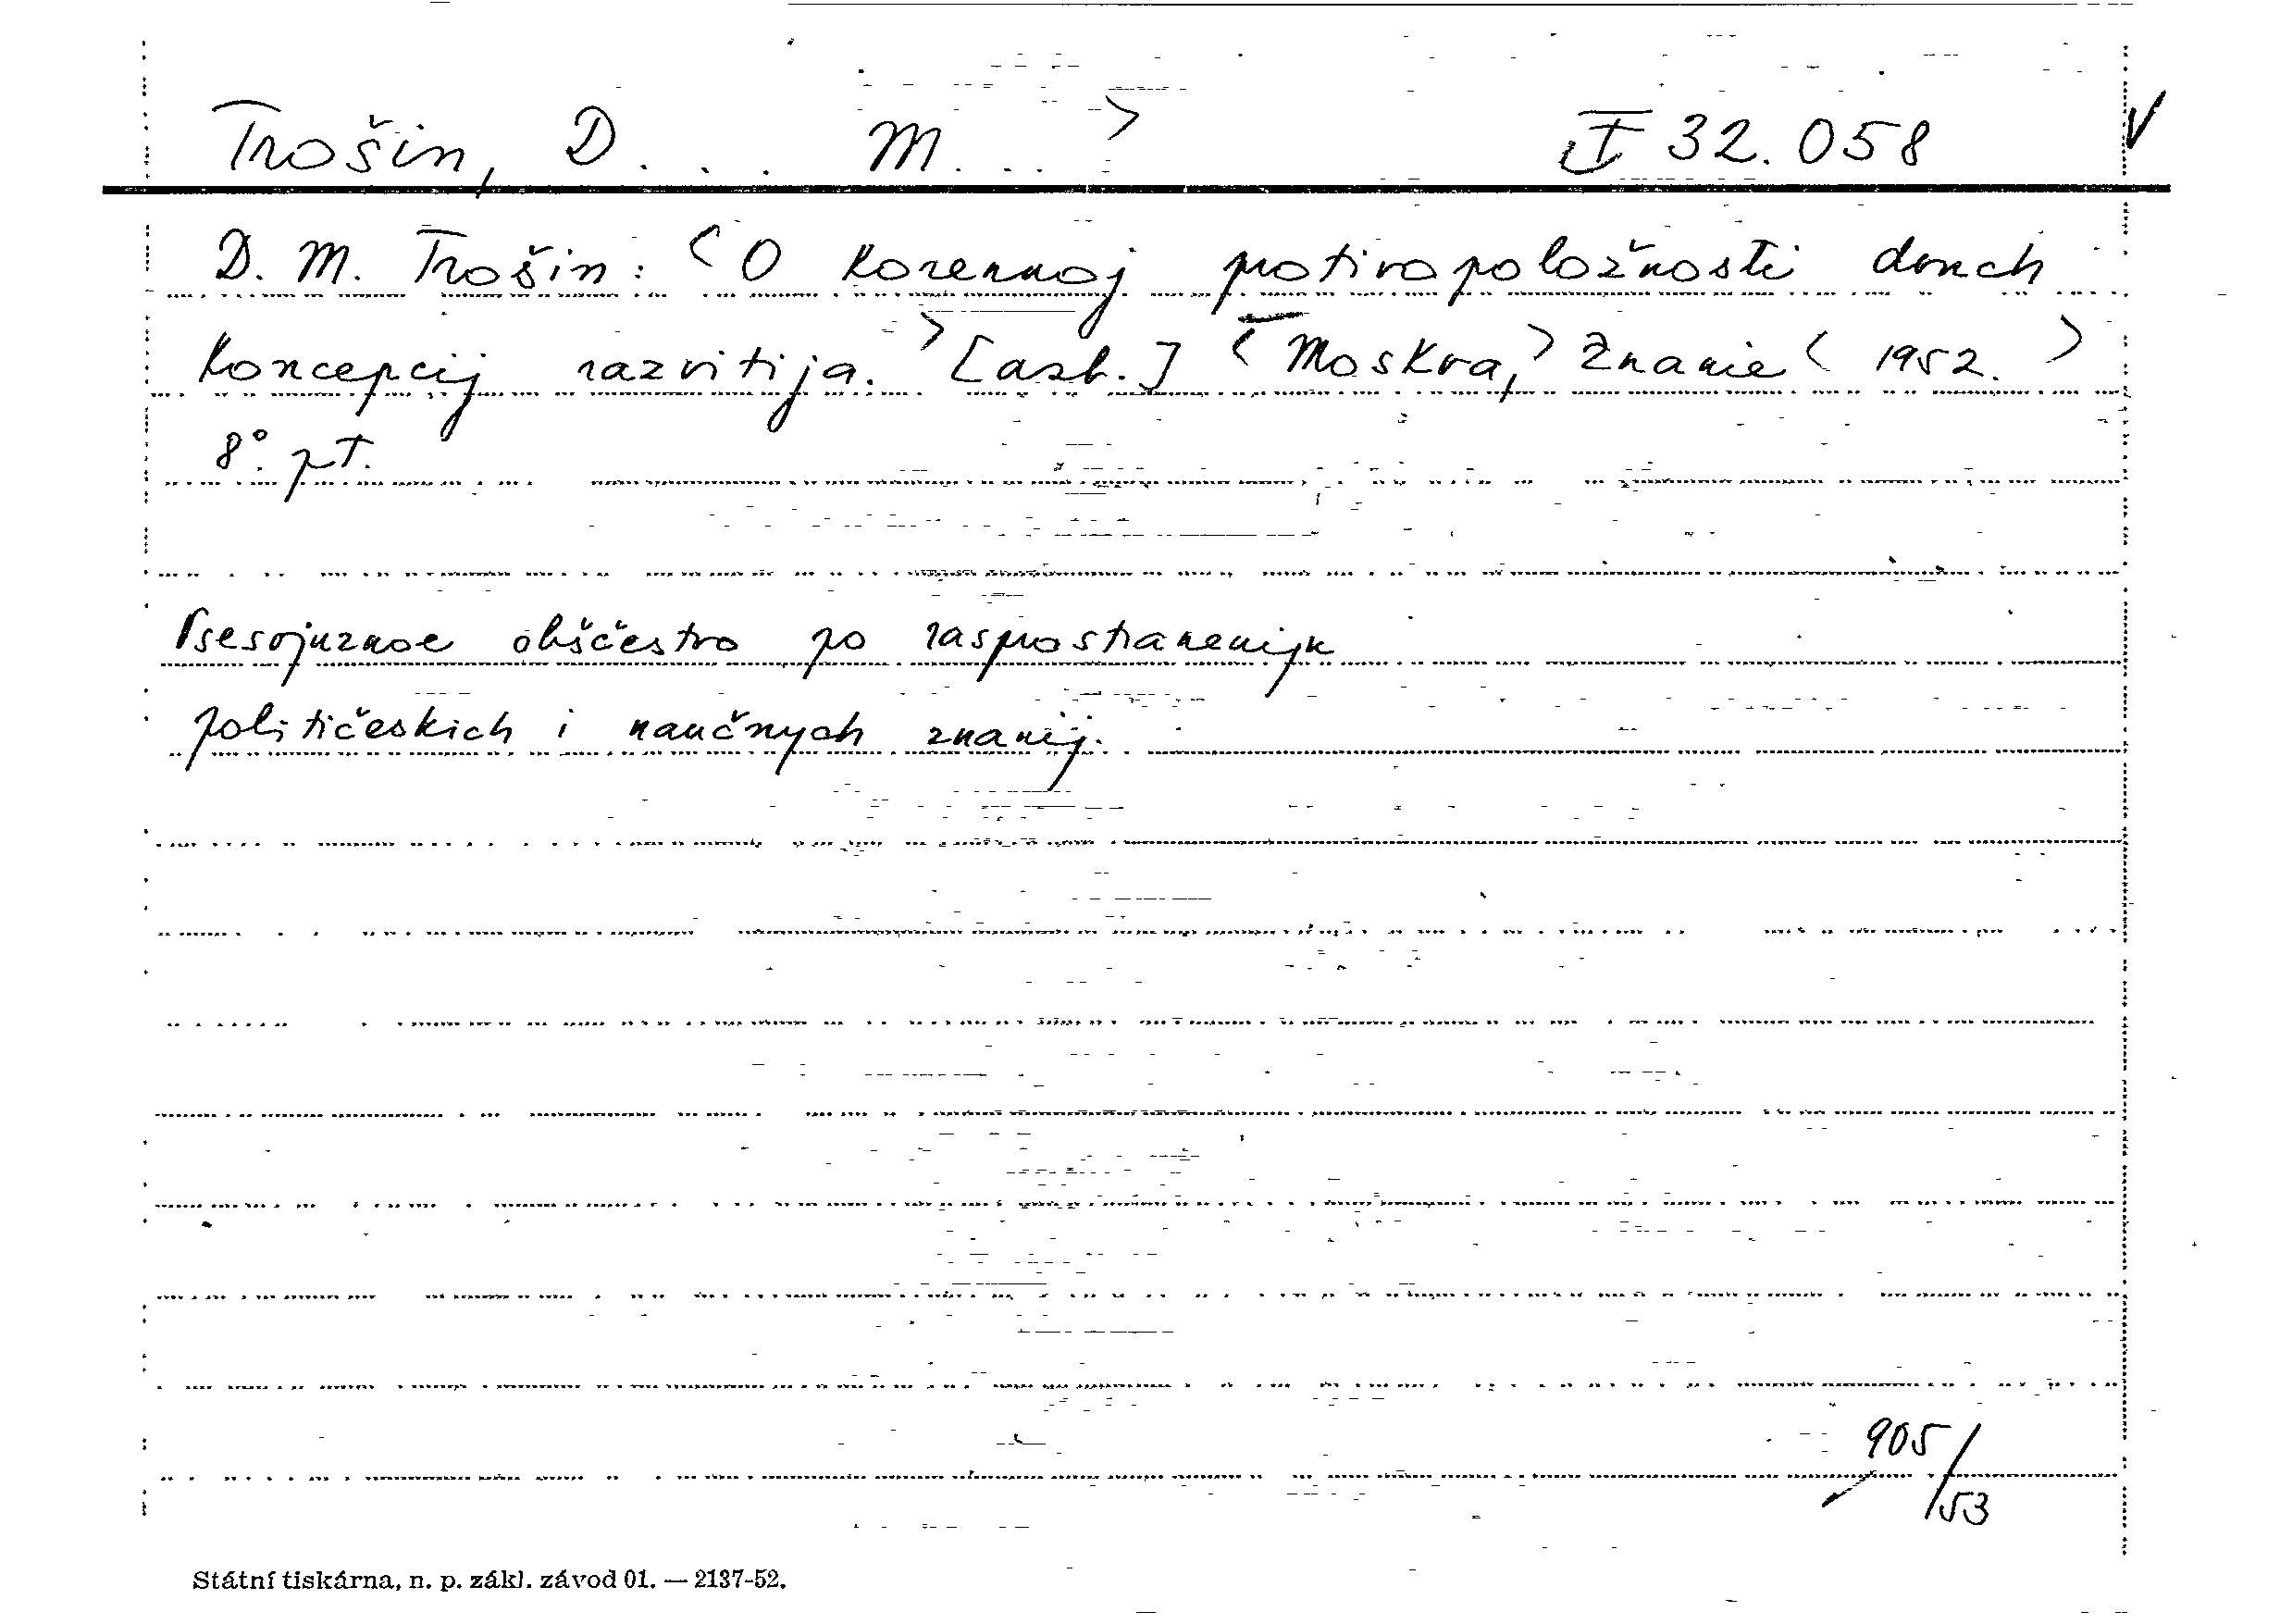 Trošin, D... M...> I 32.058 V
D. M. Trošin: <O korennoj protivopoložnosti dvuch
koncepcij razvitija.> [azb.] <Moskva,> Znanie <1952.>
8°. pT.
Vsesojuznoe obščestvo po rasprostraneniju
političeskich i naučnych znanij.
905/53
Státní tiskárna, n. p. zákl. závod 01. — 2137-52.